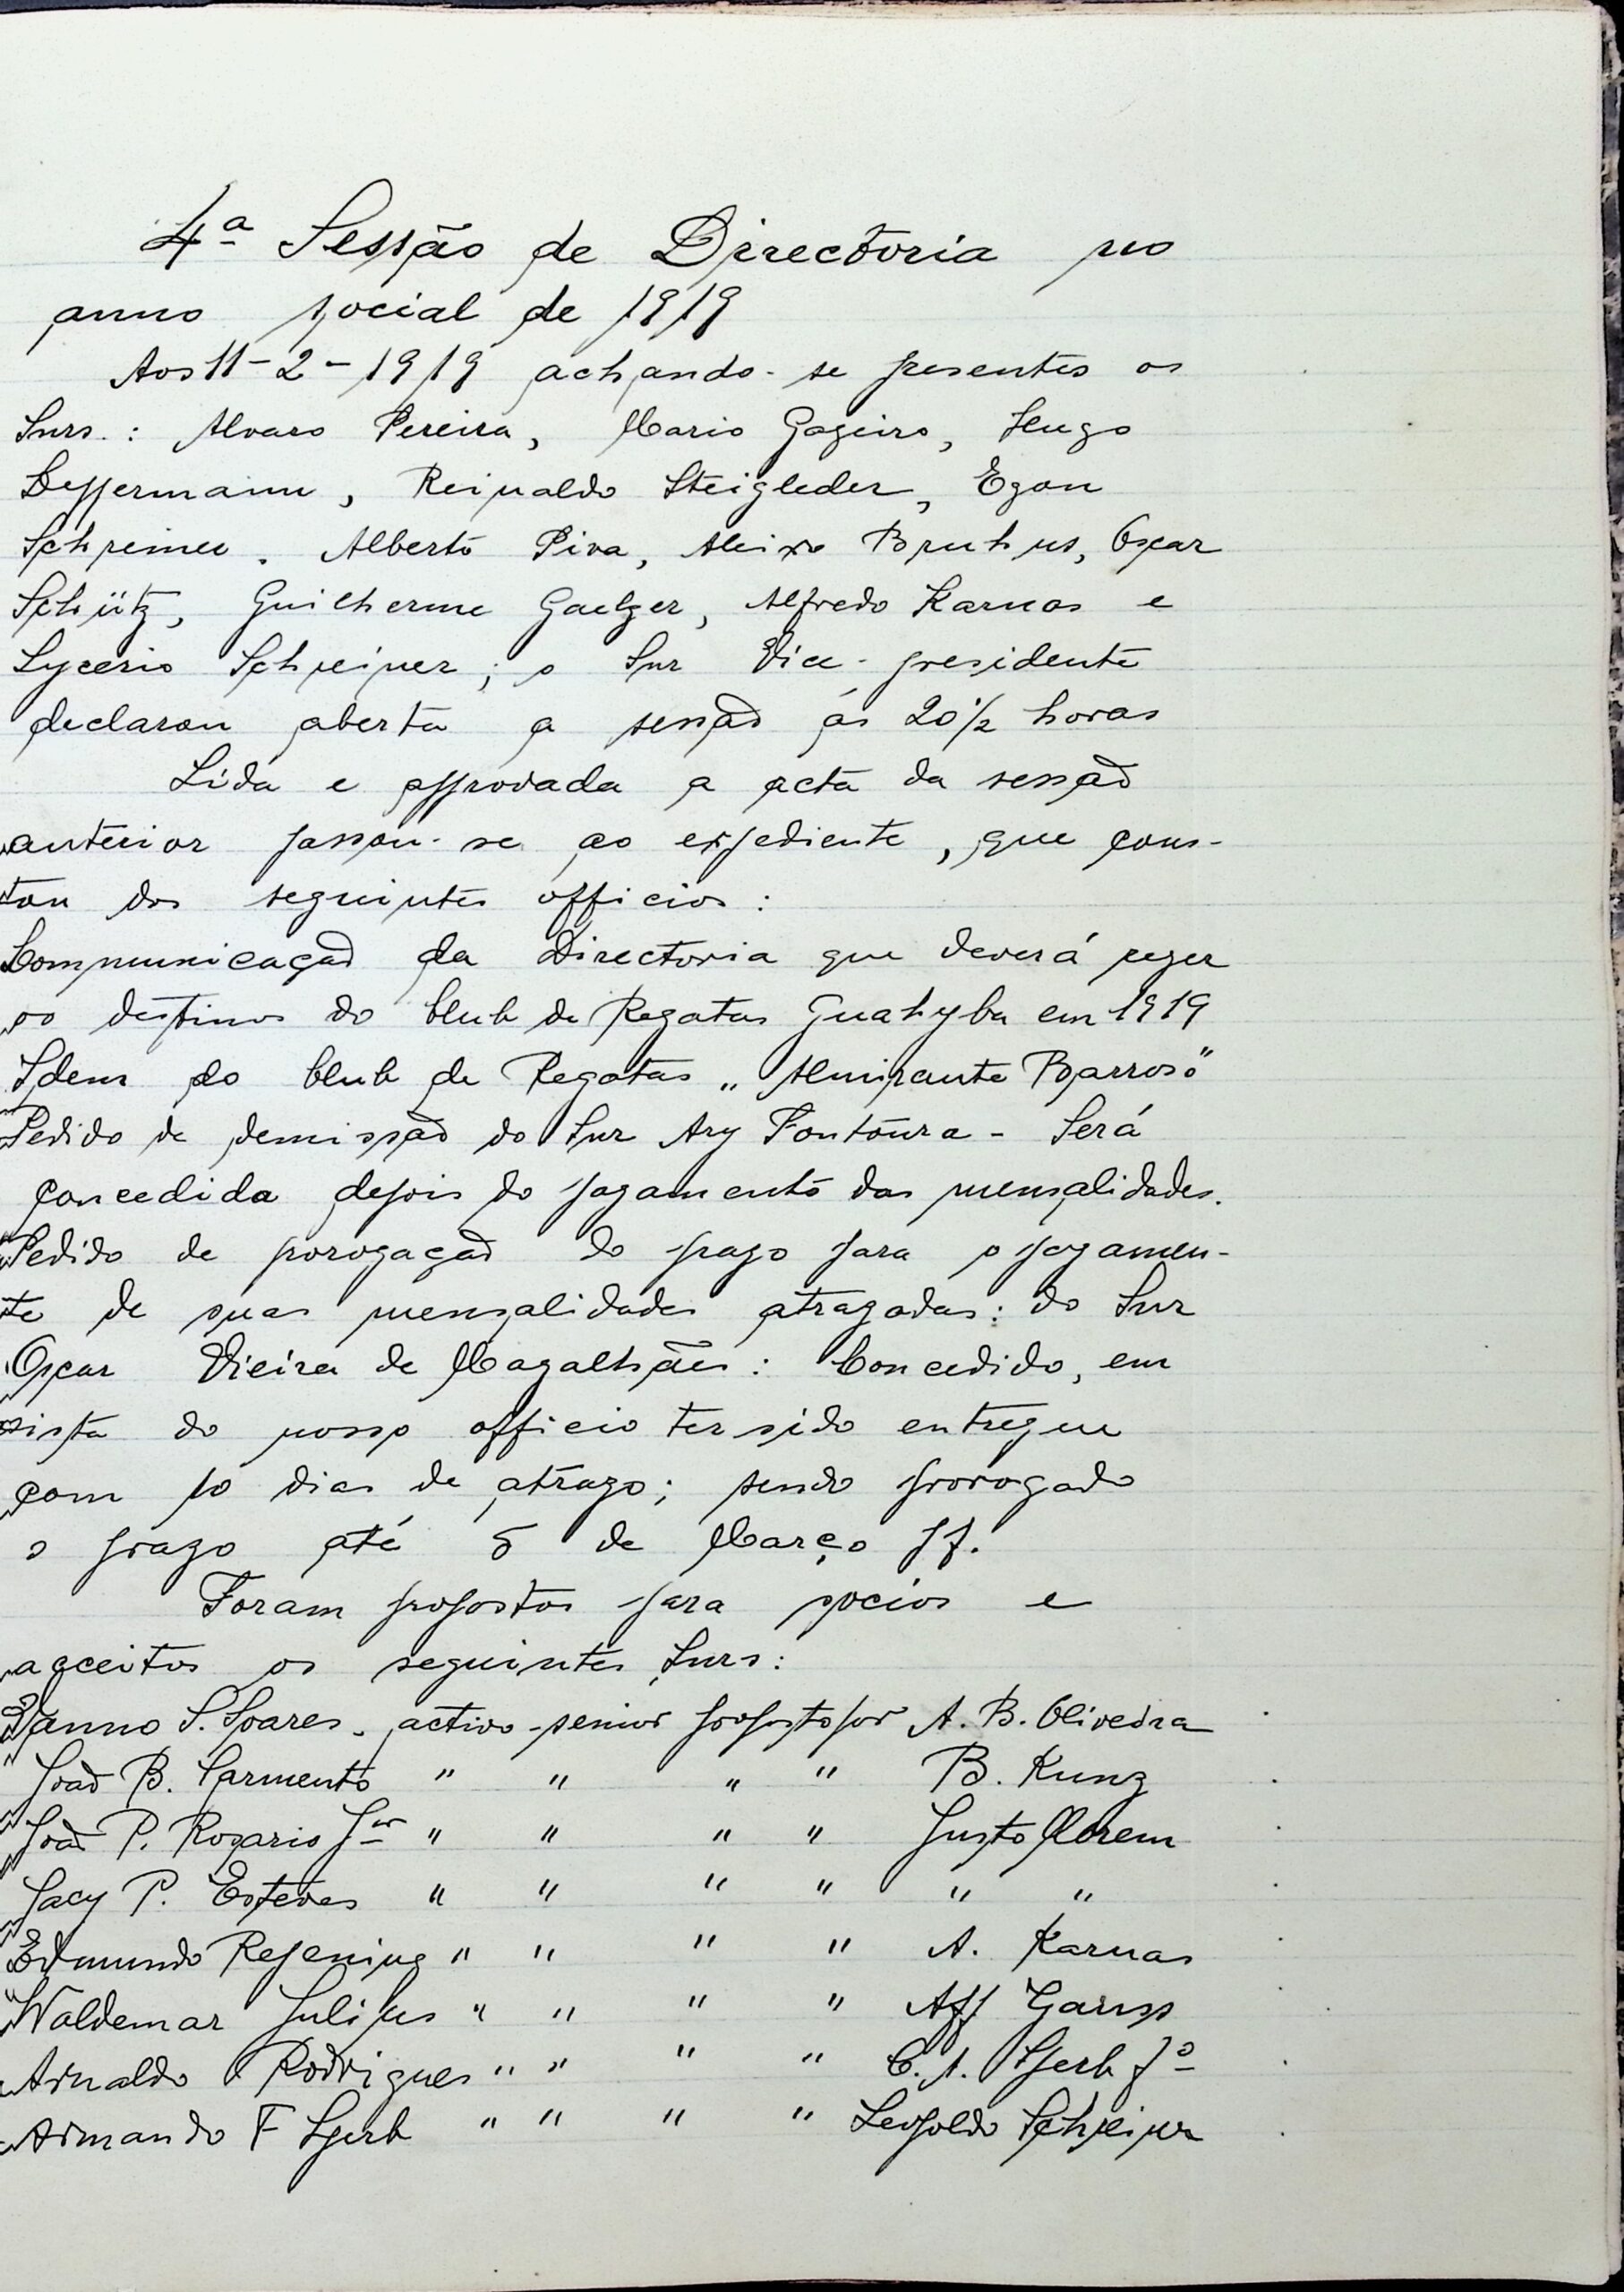 4ª Sessão de Directoria no
anno social de 1919
Aos 11-2-1919 achando-se presentes os
Snrs.: Alvaro Pereira, Mario Gageiro, Hugo
Deppermann, Reinaldo Steigleder, Egon
Schreiner, Alberto Piva, Aleixo Bruhns, Oscar
Schütz, Guilherme Gaelzer, Alfredo Karnas e
Lycerio Schreiner; o Snr Vice-presidente
declarou aberta a sessão ás 20 1/2 horas
Lida e approvada a acta da sessão
anterior passou-se ao expediente, que cons-
tou dos seguintes officios:
Communicação da Directoria que deverá reger
os destinos do Club de Regatas Guahyba em 1919
Idem do Club de Regatas „Almirante Barroso"
Pedido de demissão do Snr Ary Fontoura - Será
concedida depois do pagamento das mensalidades.
Pedido de porogação do prazo para o pagamen-
to de suas mensalidades atrazadas: do Snr
Oscar Vieira de Magalhães: Concedido, em
vista do nosso officio ter sido entregue
com 10 dias de atrazo; sendo prorogado
o prazo até 5 de Março pf.
Foram propostos para socios e
acceitos os seguintes Snrs:
S. Soares, activo-senior proposto por A. B. Oliveira
João B. Sarmento " " " " B. Kunz
João P. Rosario Jor " " " " Justo Morem
Jacy P. Esteves " " " " " "
Edmundo Repening " " " " A. Karnas
Waldemar Julius " " " "
Arnaldo Rodrigues " " " " C. A. Sperb Fo
Armando F Sperb " " " " Leopoldo Schreiner